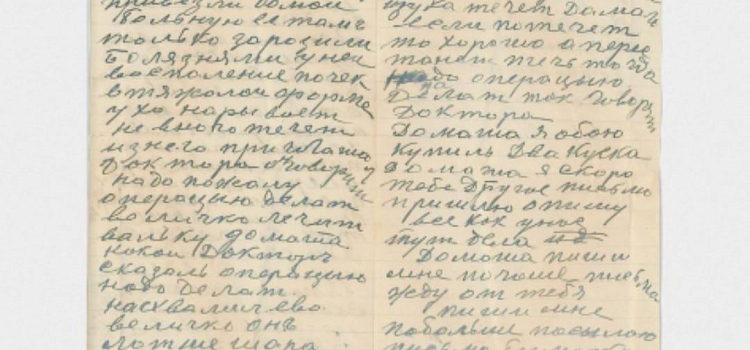 привезли домой
больную её тамъ
только зарозили
болязнями у ней
воспаление почек
в тяжолой форме
ухо нарывает
не много течет
из него приглашал
доктора он говорит
надо пожалу
операцыю делат
величко лечит
вальку домаша
какой доктор
сказалъ операцыю
надо делат
насхвалил ево
величко онъ
ухо течет Домаш
если потечет
то хорошо а перес
танет течь тогда
надо операцыю
делат так говорит
доктора
Домаша я обою
купилъ два куска
домаша я скоро
тебе другое письмо
пришлю опишу
все как у нас
тут дела
Домаша пиши
мне почаше письма
жду от тебя
пиши мне
побольши посылаю